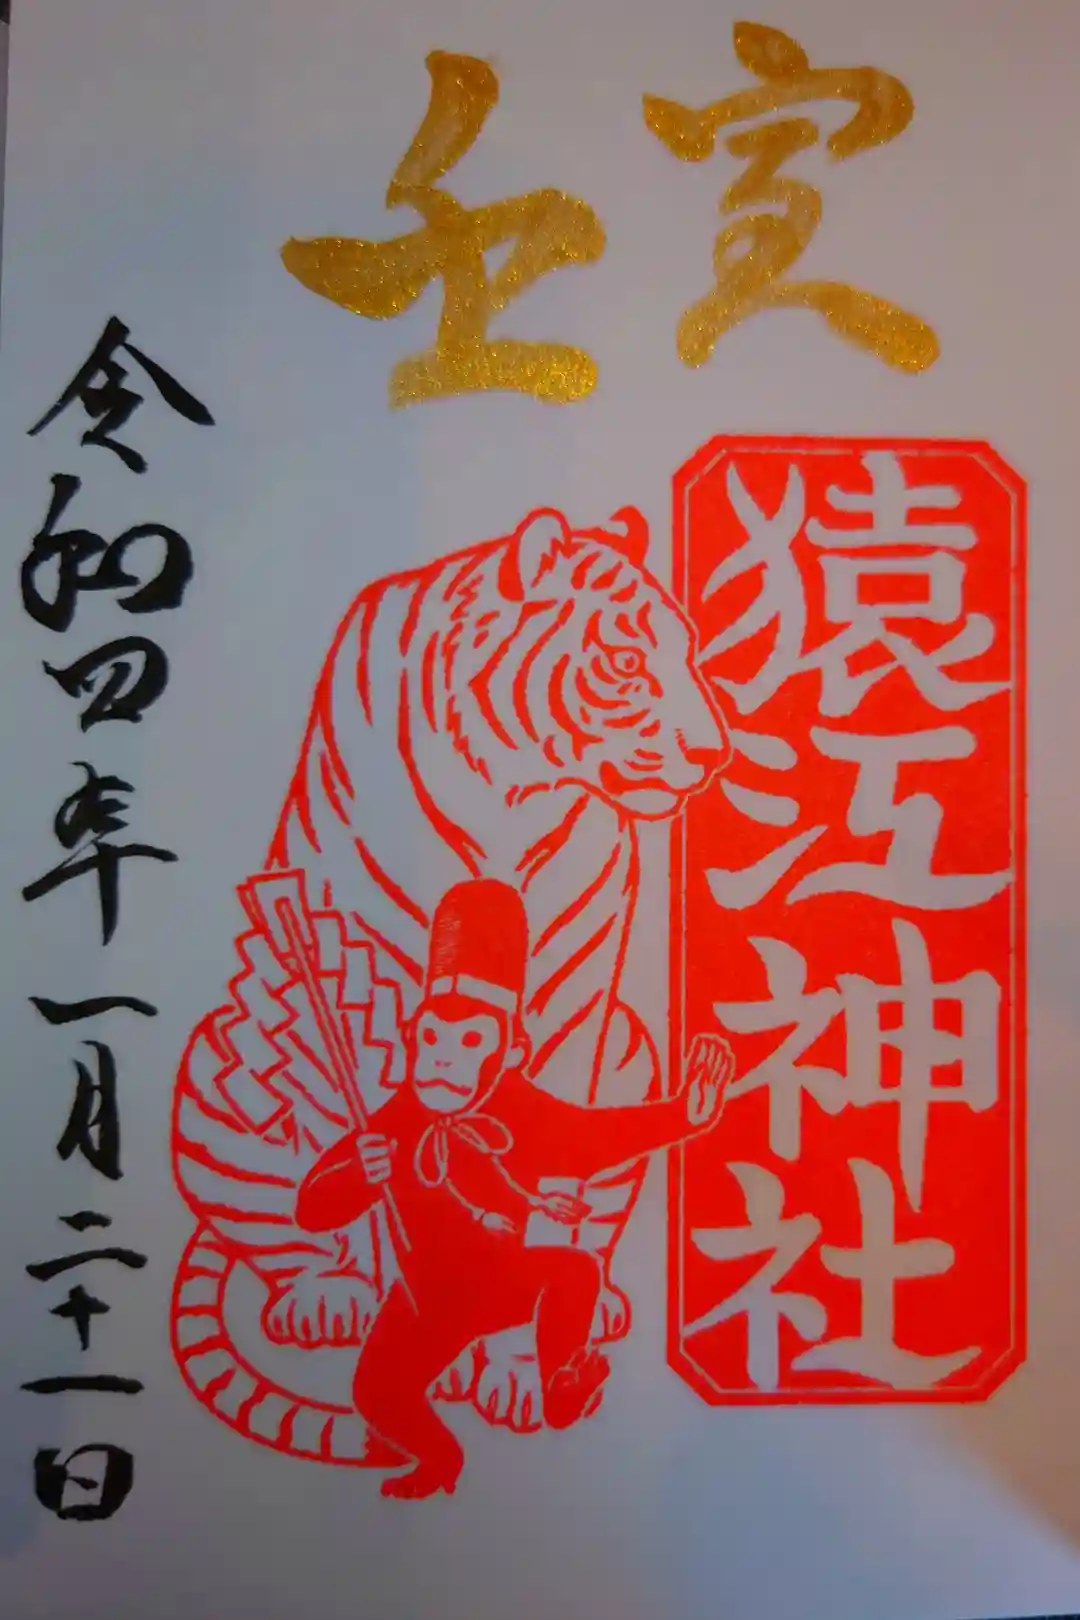 壬寅
猿江神社
令和四年一月二十一日